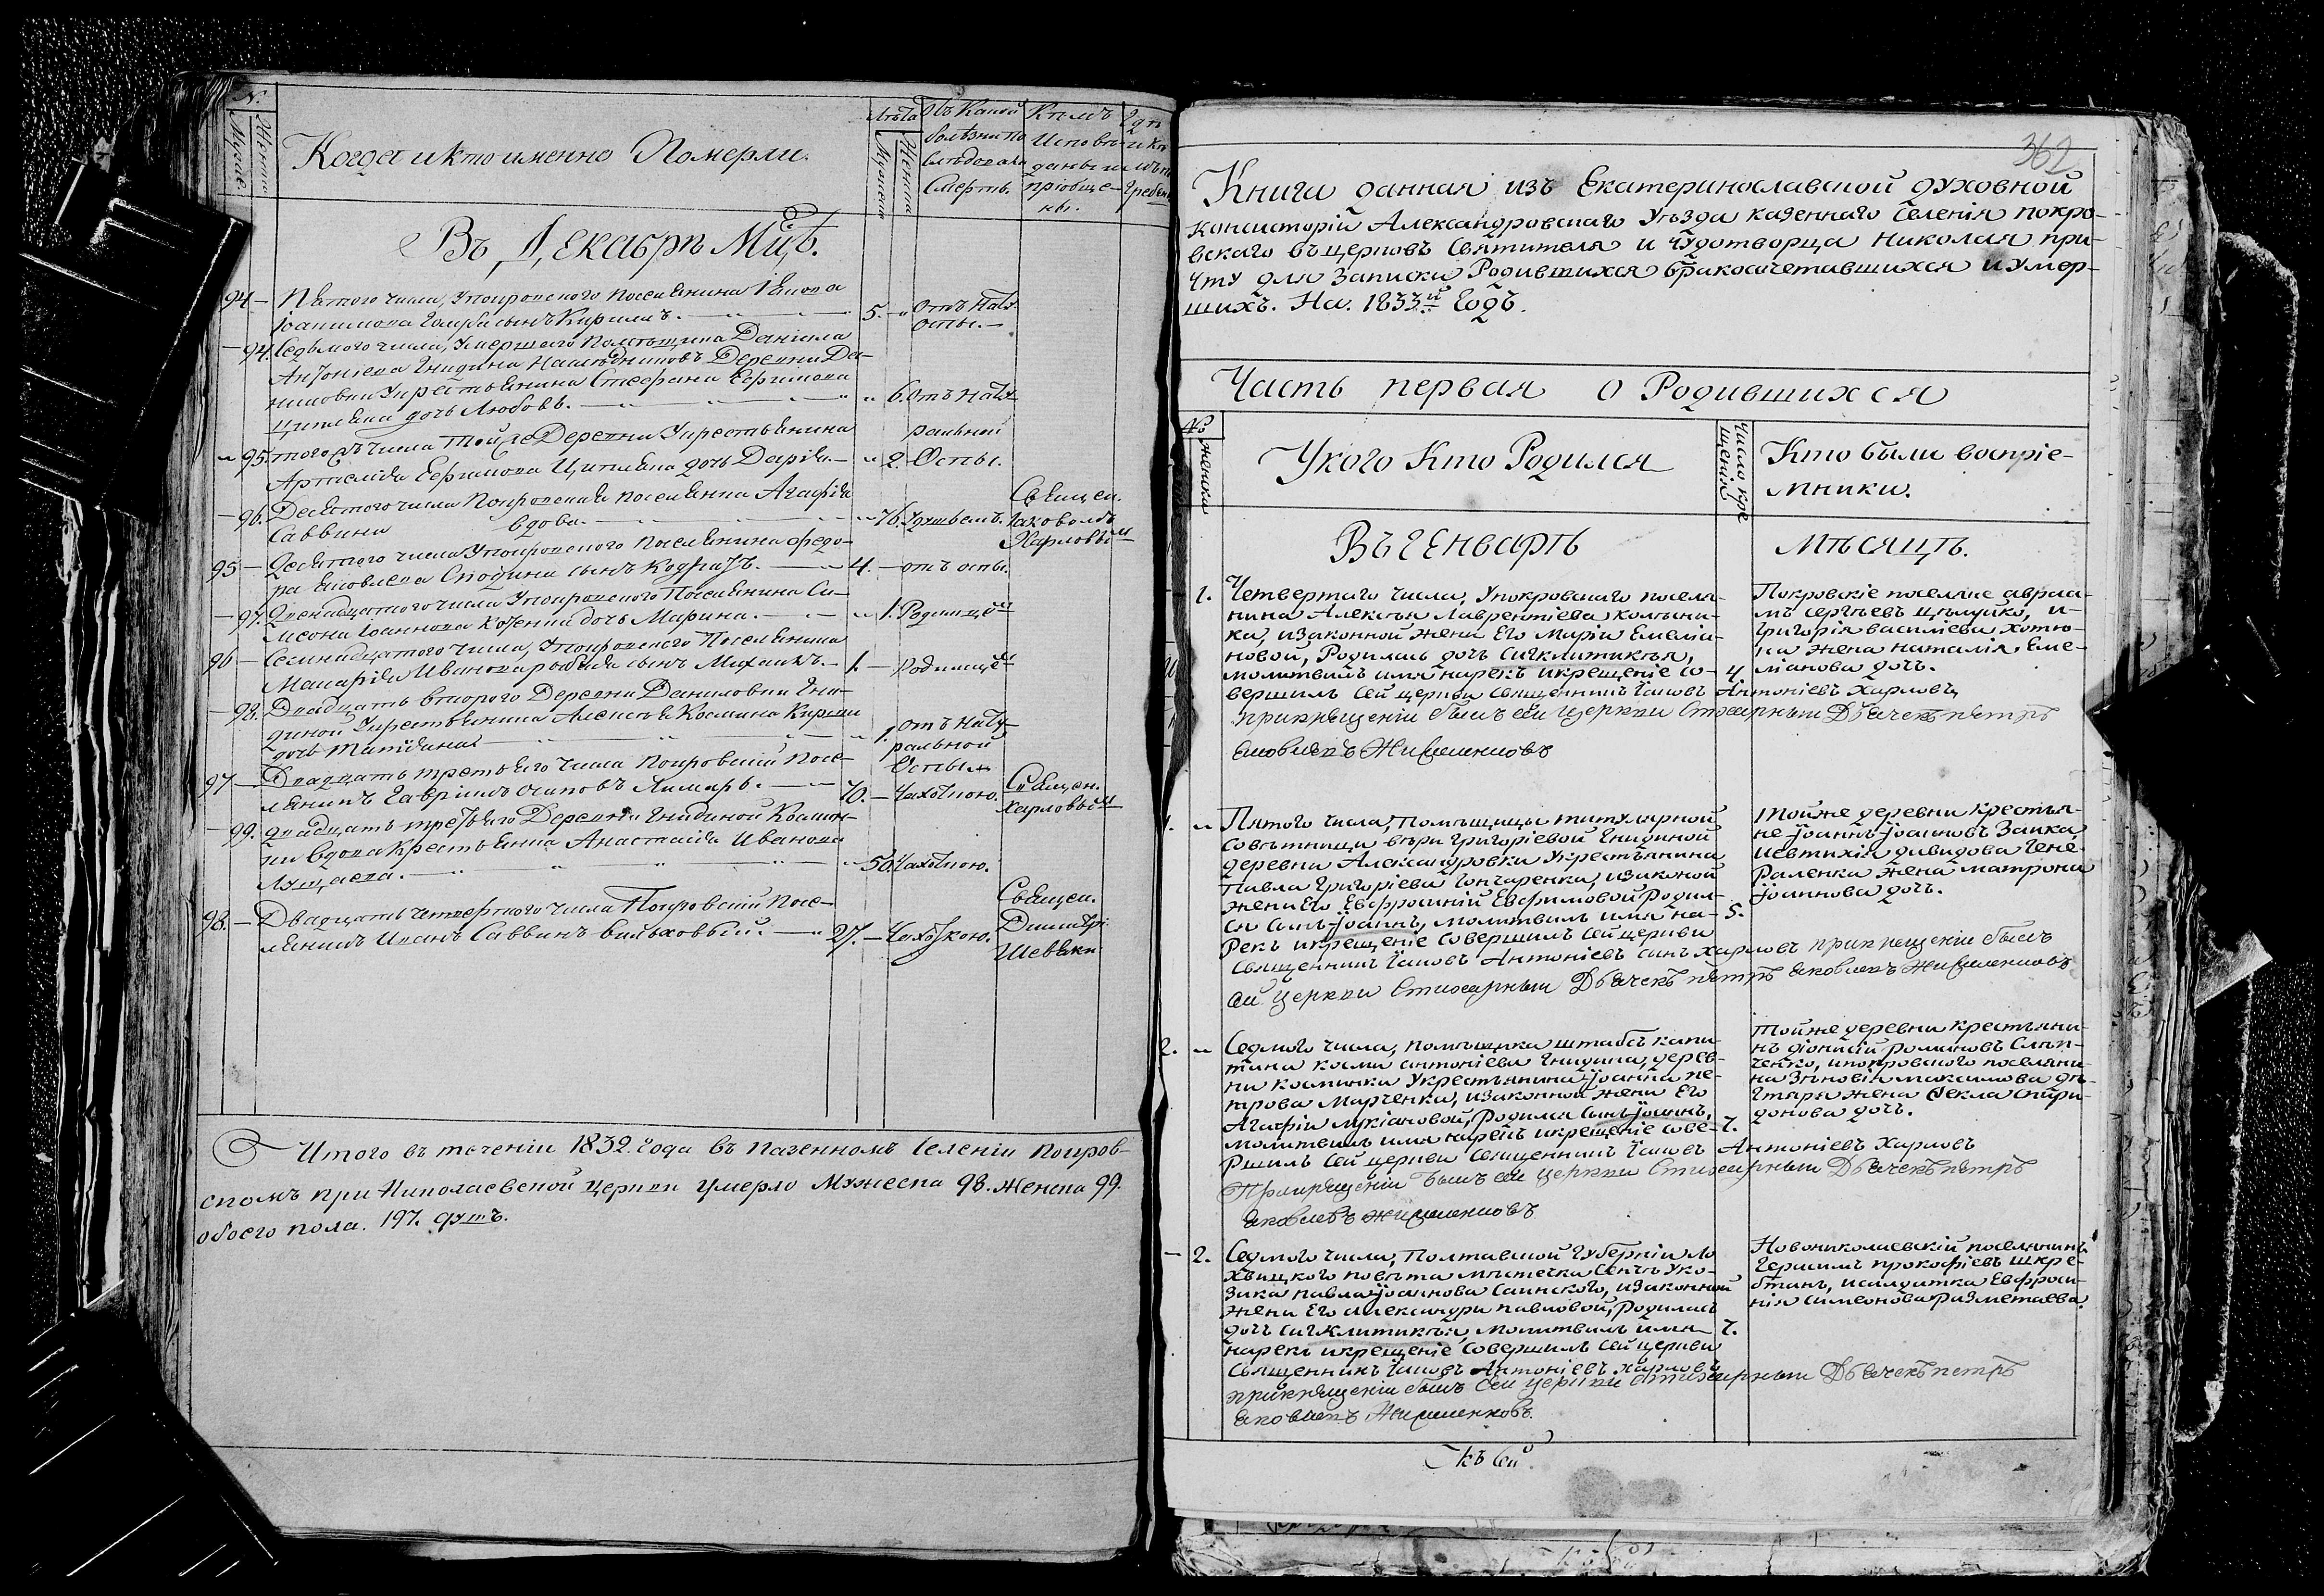 N.
Мужес.
Женска
Когда и кто именно Померли.
Лѣта
Мужеска
Женска
Въ Какой
болѣзни по
слѣдовала
Смерть.
Кѣмъ
Исповѣ-
даны и
пріобще-
ны.
Въ Декабрѣ Мцѣ.
94 — Пятого числа, Упокровского поселянина Iякова
Iоакимова Голуба сынъ Кирилъ. — 5. — Отъ Нат.
оспы. —
— 94. Седьмого числа, Умершего Помѣщика Даніила
Антоніева Гнидина Наслѣдниковъ Деревни Да-
ниловки Укрестьянина Стефана Ефимова
дочь Любовь. — " 6. Отъ Нату-
ральной
" 95. того жъ числа тойже Деревни Укрестьянина
Артемія Ефимова дочь Дарія. — " 2. Оспы.
— 96. Десятого числа Покровская поселянка Агафія
Саввина вдова. — " 76. Удушьемъ.
Священ.
Iаковомъ
Харловым
95 — Десятого числа Упокровского поселянина Федо-
ра Яковлева сынъ — 4. — отъ оспы.
— 97. Двенадцатого числа Упокровского Поселянина Си-
меона Iоаннова дочь Марина. — " 1. Родимцем
96 — Семнадцатого числа, Упокровского Поселянина
Макарія Иванова сынъ Михаилъ. — 1. — Родимцем
— 98. Двадцать второго Деревни Даниловки Гни-
диной Укрестьянина Алексѣя Космина
дочь Татіана — " 1. отъ Нату-
ральной
Оспы.
97 — Двадцать третьяго числа Покровскій посе-
лянинъ Гавріилъ Осиповъ Лимарь. — 70. — Чахоткою.
Священ.
Харловым
— 99. двадцать третьяго Деревни Гнидиной Космин-
ки вдова Крестьянка Анастасія Иванова
— " 50. Чахоткою.
98. — Двадцать четвертого числа Покровскій посе-
лянинъ Иванъ Саввинъ — 27. — Чахоткою.
Священ.
Димитрі
Шевяки
Итого въ теченіи 1832. года въ Казенномъ Селеніи Покров-
скомъ при Николаевской Церкви Умерло Мужеска 98. Женска 99.
обоего пола. 197. душъ.
362
Книга данная изъ Екатеринославской духовной
консисторіи Александровскаго Уѣзда казеннаго Селенія покро-
вскаго въ церковъ Святителя и чудотворца Николая при-
чту для Записки Родившихся бракосочетавшихся и Умер-
шихъ. На. 1833й Годъ.
Часть первая о Родившихся
№
женски
Укого Кто Родился
Число кре
щенія
Кто были воспріе-
мники.
Въ Генварѣ
Мѣсяцѣ.
1. Четвертого Числа, Упокровского поселя-
нина Алексѣя Лаврентіева
ка, изаконной жени Его Маріи Емелія-
новой, Родилась дочь Сигклитикія,
молитвилъ имя нарекъ и крещеніе со-
вершилъ Сей церкви Священникъ Іаковъ Антоніевъ Харловъ
при крещеніи былъ сей Церкви Стихарный Дьячекъ петръ
Яковлевъ
4.
Покровскіе поселяне авраа-
мъ сергѣевъ и
Григорія василіева Хотю-
на жена наталія Еме-
ліанова дочь.
1. " Пятого числа, Помѣщицы титулярной
Совѣтници вѣри Григоріевой Гнидиной
деревни Александровки Укрестьянина
Павла Григоріева Гончаренка, изаконой
жени Его Евфросиніи Евфимовой Родил-
ся Синъ Іоаннъ, молитвилъ имя на-
рекъ и крещеніе Совершилъ Сей церкви
Священникъ Іаковъ Антоніевъ синъ Харловъ при крещеніи былъ
сей Церкви Стихарный Дьячекъ петръ яковлевъ
5.
Тойже деревни Крестья-
не Iоаннъ Iоанновъ Заика,
и евтихія давидова Гене-
раленка жена матрона
Іоаннова дочь.
2. " Седмого числа, помѣщика штабсъ капи-
тана косми антоніева Гнидина, дерев-
ни косминки Укрестьянина Iоанна пе-
трова Марченка, изаконной жени Его
Агафіи Лукіановой, Родился Синъ Іоаннъ,
молитвилъ имя нарекъ и крещеніе сове-
ршилъ Сей церкви Священникъ Іаковъ Антоніевъ Харловъ
При крещеніи былъ сей Церкви Стихарный Дьячекъ петръ
яковлевъ
7.
Тойже деревни Крестьяни-
нъ діонисій романовъ Слѣп-
ченко, и покровского поселяни-
на Зѣновія максимова дѣ-
гтяря жена Фекла Спири-
донова дочь.
— 2. Седмого числа, Полтавской Губерніи Ло
хвицкого повѣта мѣстечка Сенчи Уко-
зака павла Iоаннова Саинского, изаконной
жени Его Александри павловой, Родилась
дочь Сигклитикія, молитвилъ имя
нарекъ и крещеніе Совершилъ Сей церкви
Священникъ Іаковъ Антоніевъ Харловъ
при крещеніи былъ Сей церкви стихарный Дьячекъ петръ
яковлевъ
7.
Новониколаевскій поселянинъ
Герасимъ прокофіевъ шкре-
бтанъ, и салдатка Евфроси-
нія Симеонова